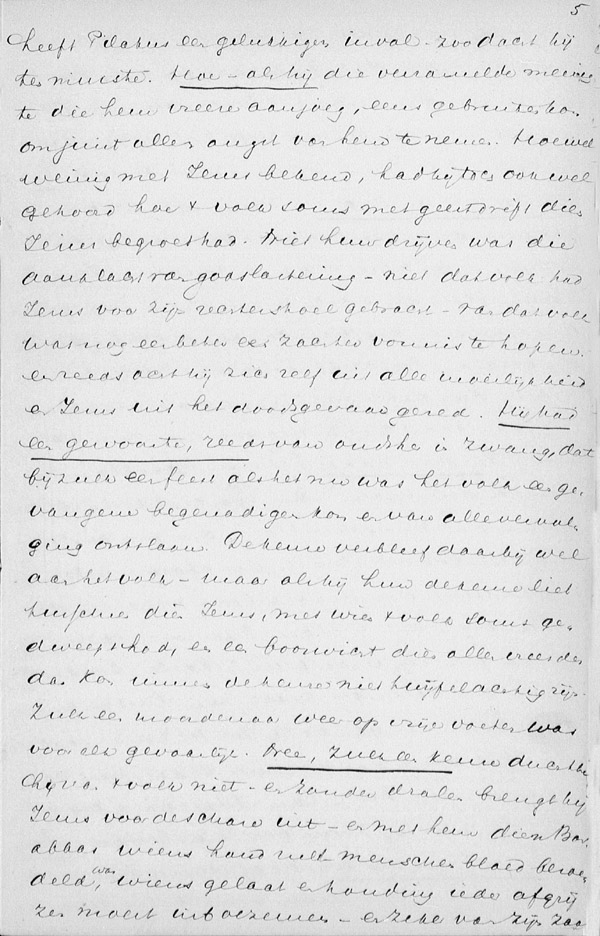 5
heeft Pilatus een gelukkigen inval - zoo dacht hij
ten minste. Hoe - als hij die verzamelde menig
te die hem vreeze aanjoeg, eens gebruiken kon
om juist allen angst van hem te nemen. Hoewel
weinig met Jezus bekend, had hij toch ook wel
gehoord hoe 't volk soms met geestdrift dien
Jezus begroet had. Niet hun drijven was die
aanklacht van godslastering - niet dat volk had
Jezus voor zijn rechterstoel gebracht - van dat volk
was nog een beter een zachter vonnis te hopen.
en reeds acht hij zich zelf uit alle moeilijkheid
en Jezus uit het doodsgevaar gered. Hij had
een gewoonte, reeds van ouds her in zwang, dat
bij zulk een feest als het nu was het volk een ge-
vangene begenadigen kon en van alle vervol-
ging ontslaan. De keuze verbleef daarbij wel
aan het volk - maar als hij hun de keuze liet
tusschen dien Jezus, met wien 't volk soms ge-
dweept had, en een booswicht dien allen vreesden
dan kon immers de keuze niet twijfelachtig zijn.
Zulk een moordenaar weer op vrije voeten was
voor elk gevaarlijk. Nee, zulk een keuze ducht hij
van 't volk niet - en zonder dralen brengt hij
Jezus voor de schare uit - en met hem dien Bar-
abbas wiens hand met menschenbloed bezoe-
deld was, wiens gelaat en houding ieder afgrij
zen moest inboezemen - en zeker van zijn zaak